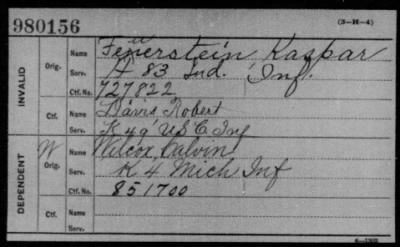 980156
(3—H—4)
INVALID
Orig.
Name
Feuerstein Kaspar
Serv.
A 83 Ind. Inf.
Ctf. No.
727822
Ctf.
Name
Davis Robert
Serv.
K 49 U S C Inf
DEPENDENT
W
Orig.
Name
Wilcox, Calvin
Serv.
K 4 Mich Inf
Ctf. No.
851700
Ctf.
Name
Serv.